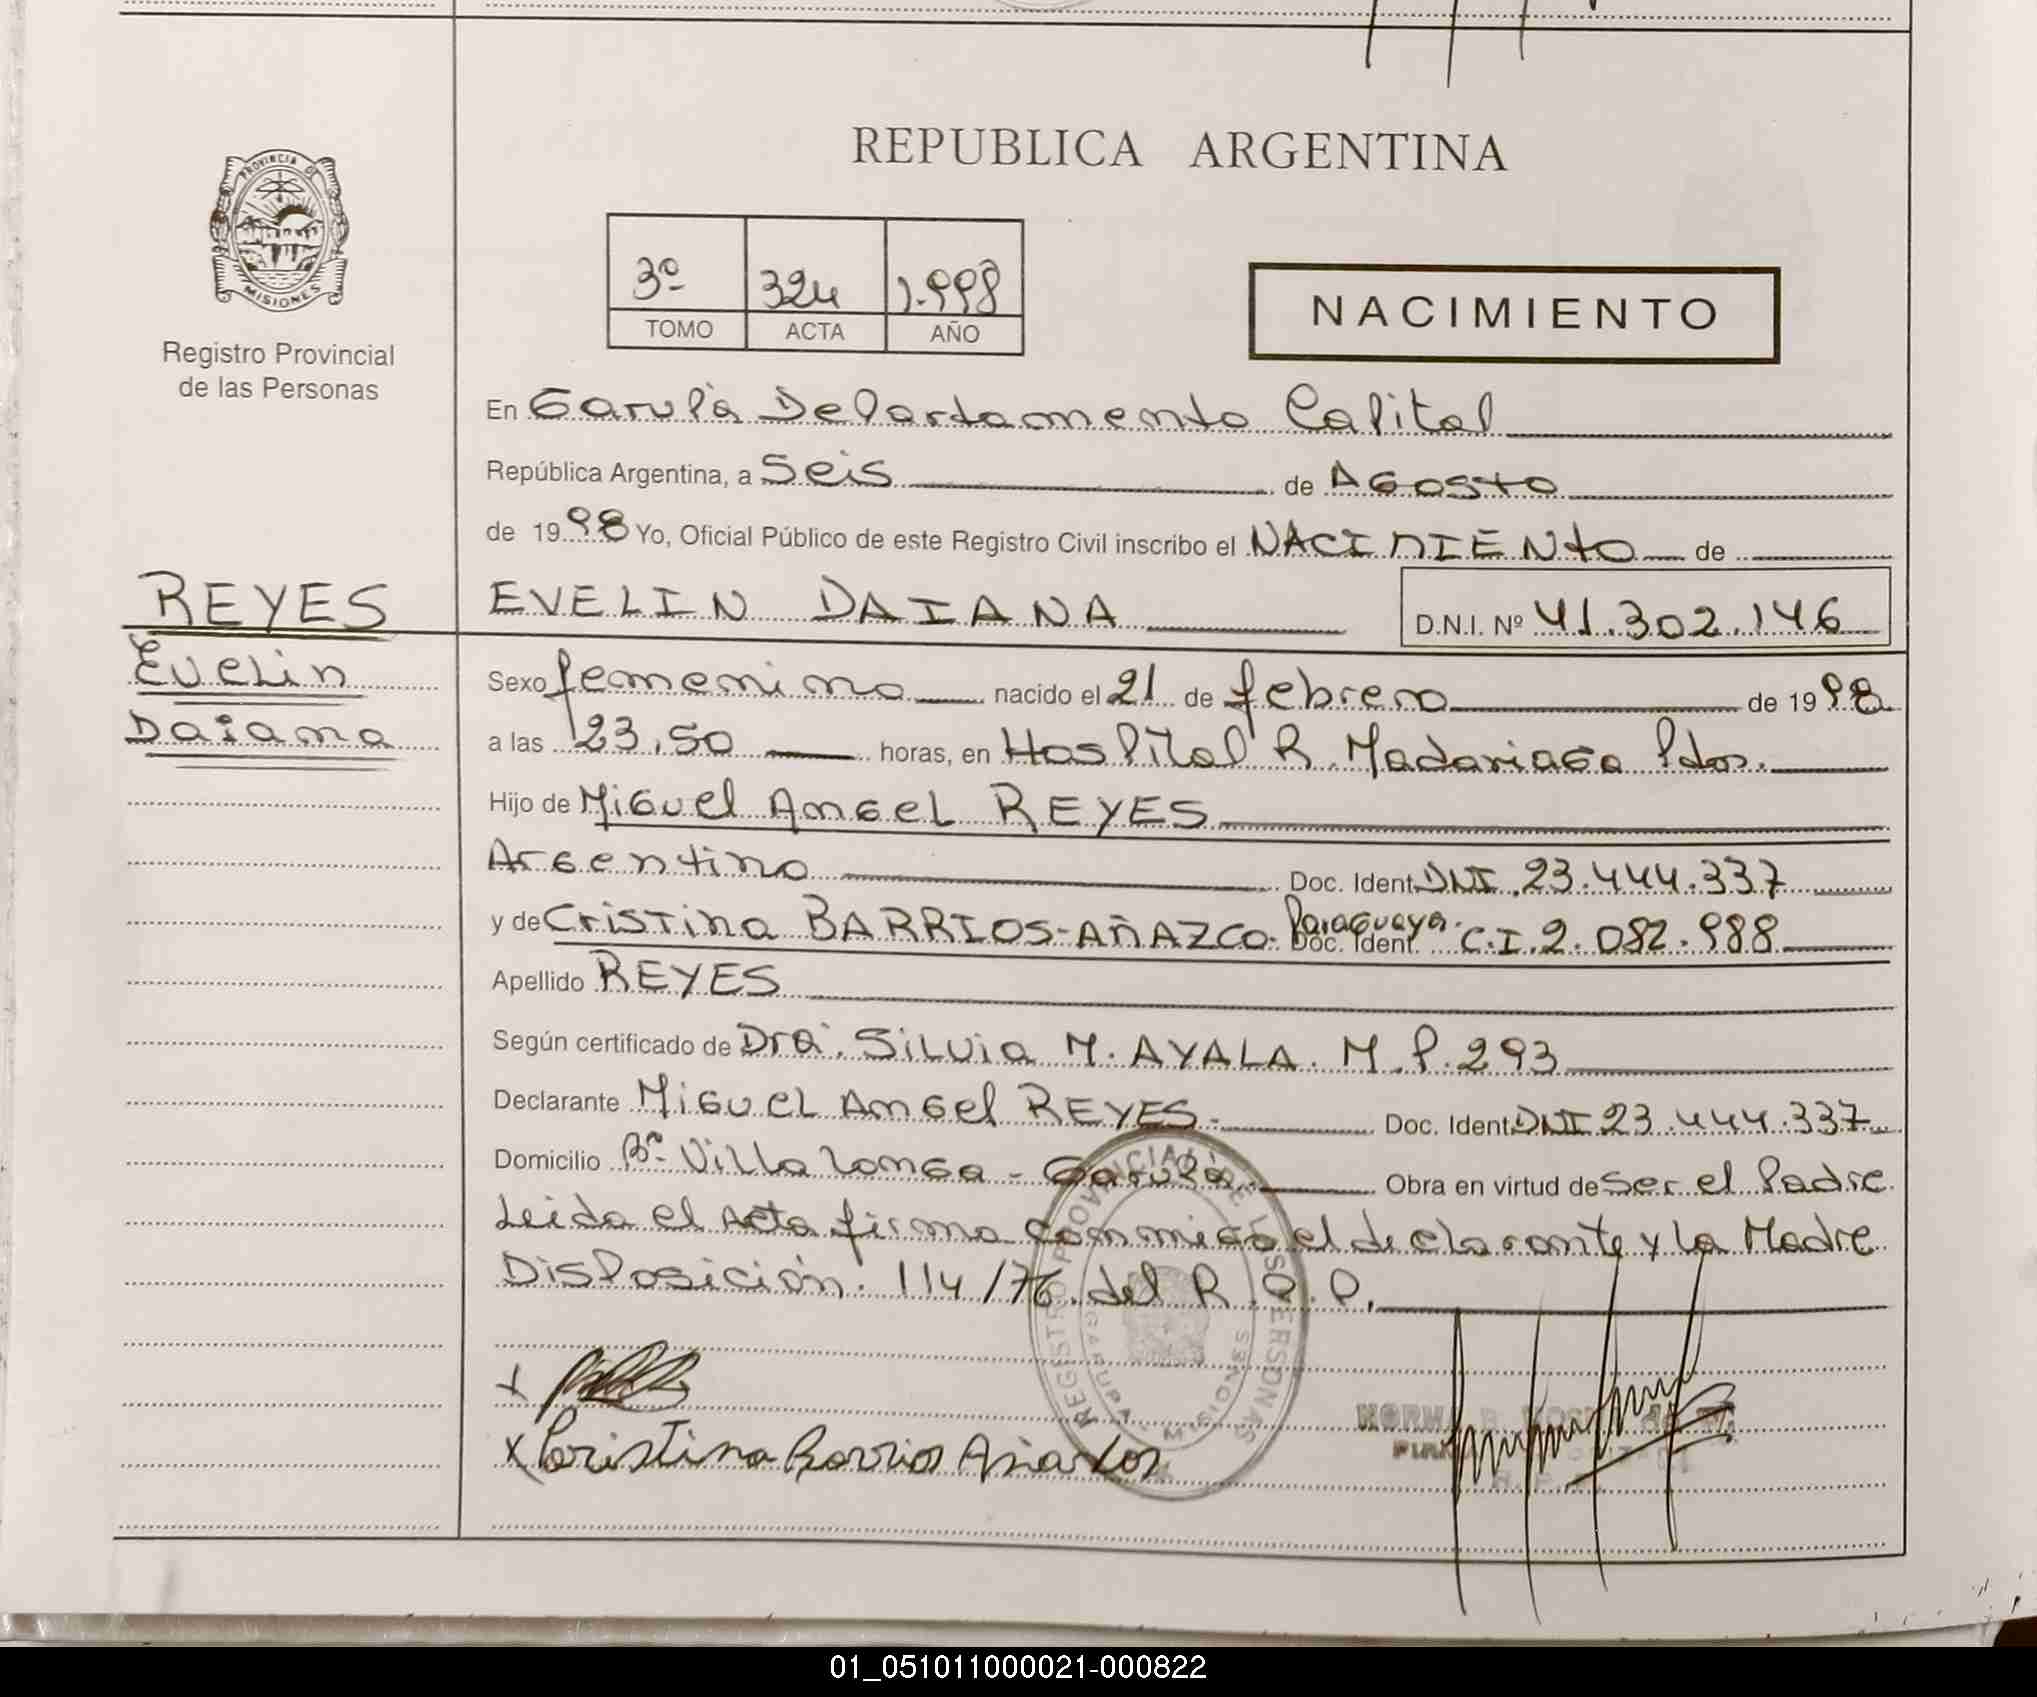 REPUBLICA ARGENTINA
PROVINCIA DE
MISIONES
Registro Provincial
de las Personas
3º 324 1.998
TOMO ACTA AÑO
NACIMIENTO
En Garupá Departamento Capital
República Argentina, a Seis de Agosto
de 1998 Yo, Oficial Público de este Registro Civil inscribo el NACIMIENTO de
REYES
Evelin
Daiana
EVELIN DAIANA D.N.I. Nº 41.302.146
Sexo femenino nacido el 21 de febrero de 1998
a las 23,50 horas, en Hospital R. Madariaga Pdas.
Hijo de Miguel Angel REYES
Argentino Doc. Ident. DNI. 23.444.337
y de Cristina BARRIOS-AÑAZCO- Paraguaya. Doc. Ident. C.I. 2.082.988
Apellido REYES
Según certificado de Dra. Silvia M. AYALA. M.P. 293
Declarante Miguel Angel REYES.- Doc. Ident. DNI 23.444.337
Domicilio Bº Villa Longa - Garupá. Obra en virtud de ser el Padre
Leida el Acta firma conmigo el declarante y la Madre
Disposición. 114/76. del R.P.P.
REGISTRO PROVINCIAL DE LAS PERSONAS
GARUPA - MISIONES
X
X Cristina Barrios Añazco
NORMA B.
01_051011000021-000822